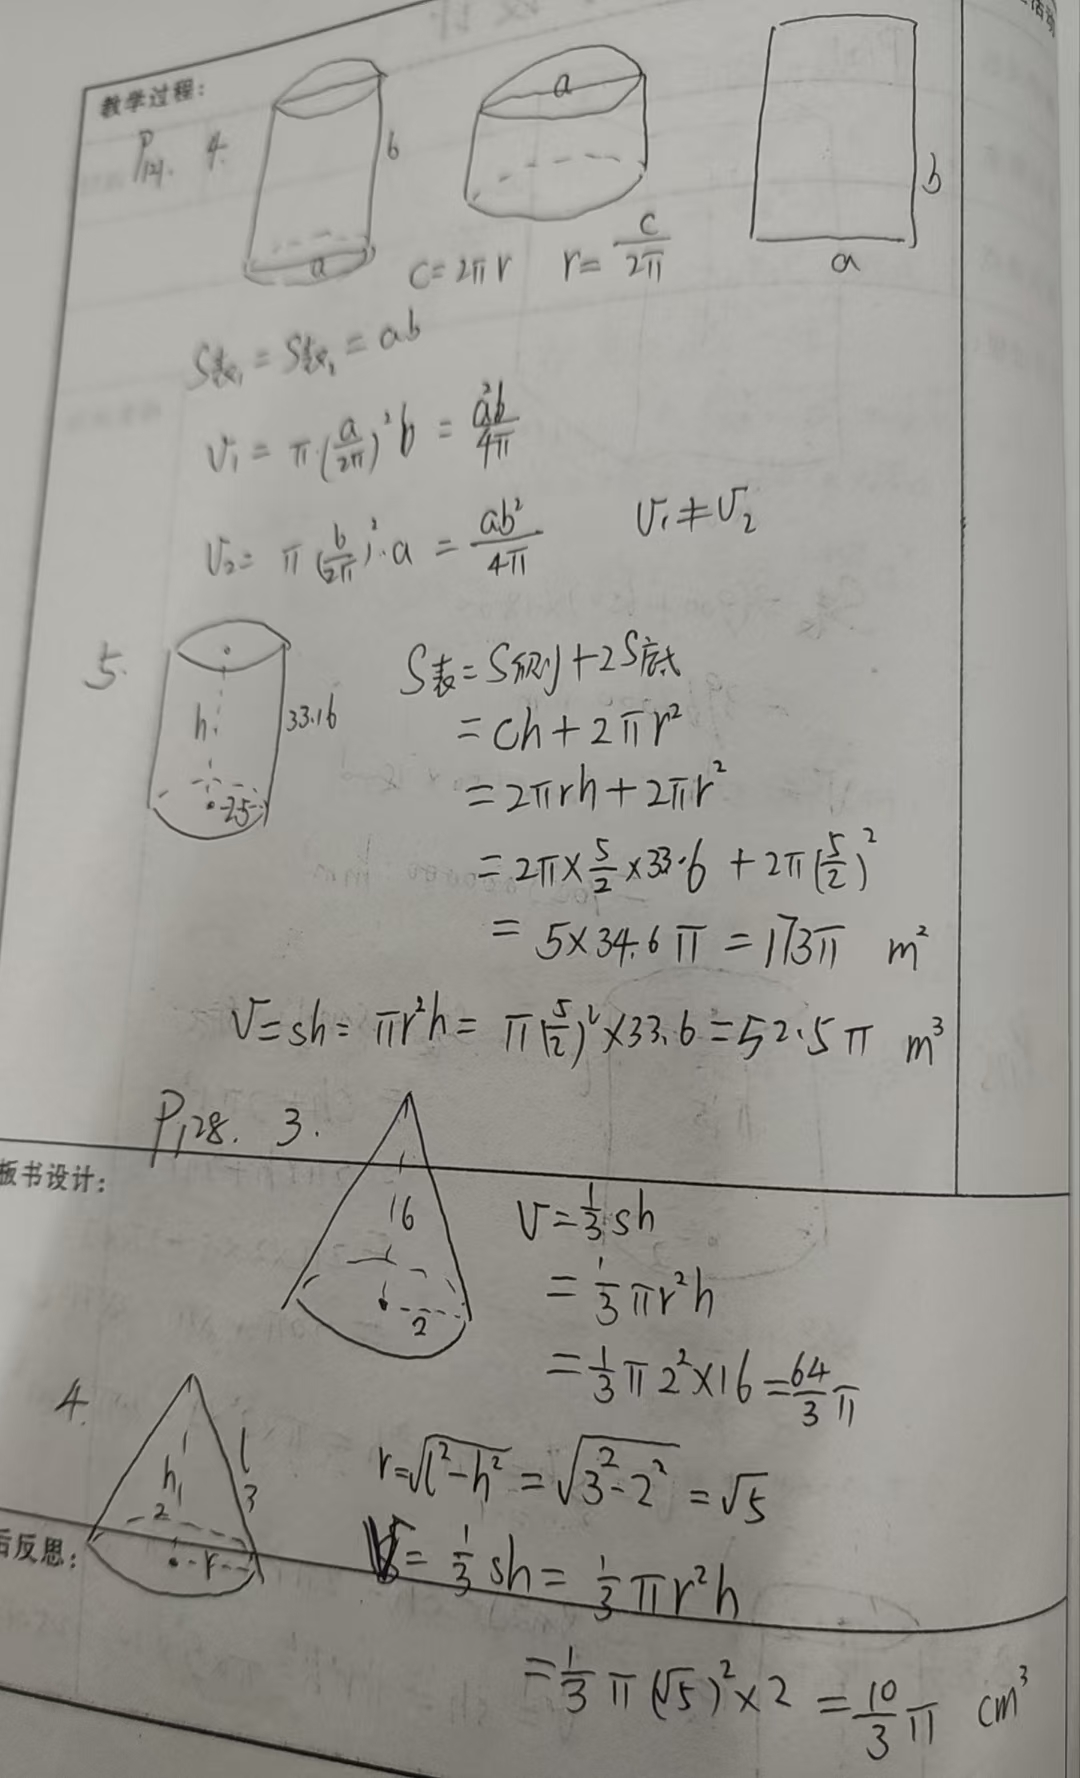 教学过程:
P121. 4.
b
a
a
b
a
C=2πr r=\frac{C}{2π}
S表₁=S表₂=ab
V₁=π·(\frac{a}{2π})²b=\frac{a²b}{4π}
V₂=π(\frac{b}{2π})²·a=\frac{ab²}{4π} V₁≠V₂
5.
h
33.16
25
S表=S侧+2S底
=Ch+2πr²
=2πrh+2πr²
=2π×\frac{5}{2}×33.6+2π(\frac{5}{2})²
=5×34.6π=173π m²
V=sh=πr²h=π(\frac{5}{2})²×33.6=52.5π m³
P128. 3.
板书设计:
16
2
V=\frac{1}{3}sh
=\frac{1}{3}πr²h
=\frac{1}{3}π2²×16=\frac{64}{3}π
4.
h
2
l
3
r
r=√(l²-h²)=√(3²-2²)=√5
后反思:
V=\frac{1}{3}sh=\frac{1}{3}πr²h
=\frac{1}{3}π(√5)²×2=\frac{10}{3}π cm³